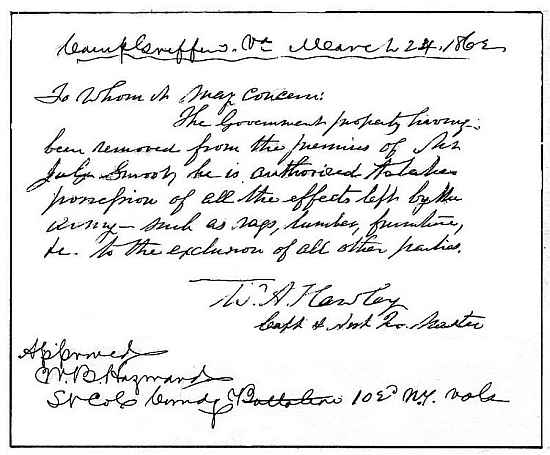 Camp Griffin. Va March 24, 1862
To Whom it May Concern:
The Government property having
been removed from the premises of Mr
Smoot, he is authorized to take
possession of all the effects left by the
army — such as rags, lumber, furniture,
&c. to the exclusion of all other parties.
W. A. Hawley
Capt & Asst Qr. Master
Approved
W. B. Hayward
Lt Col Comdg Battalion 102d N.Y. Vols